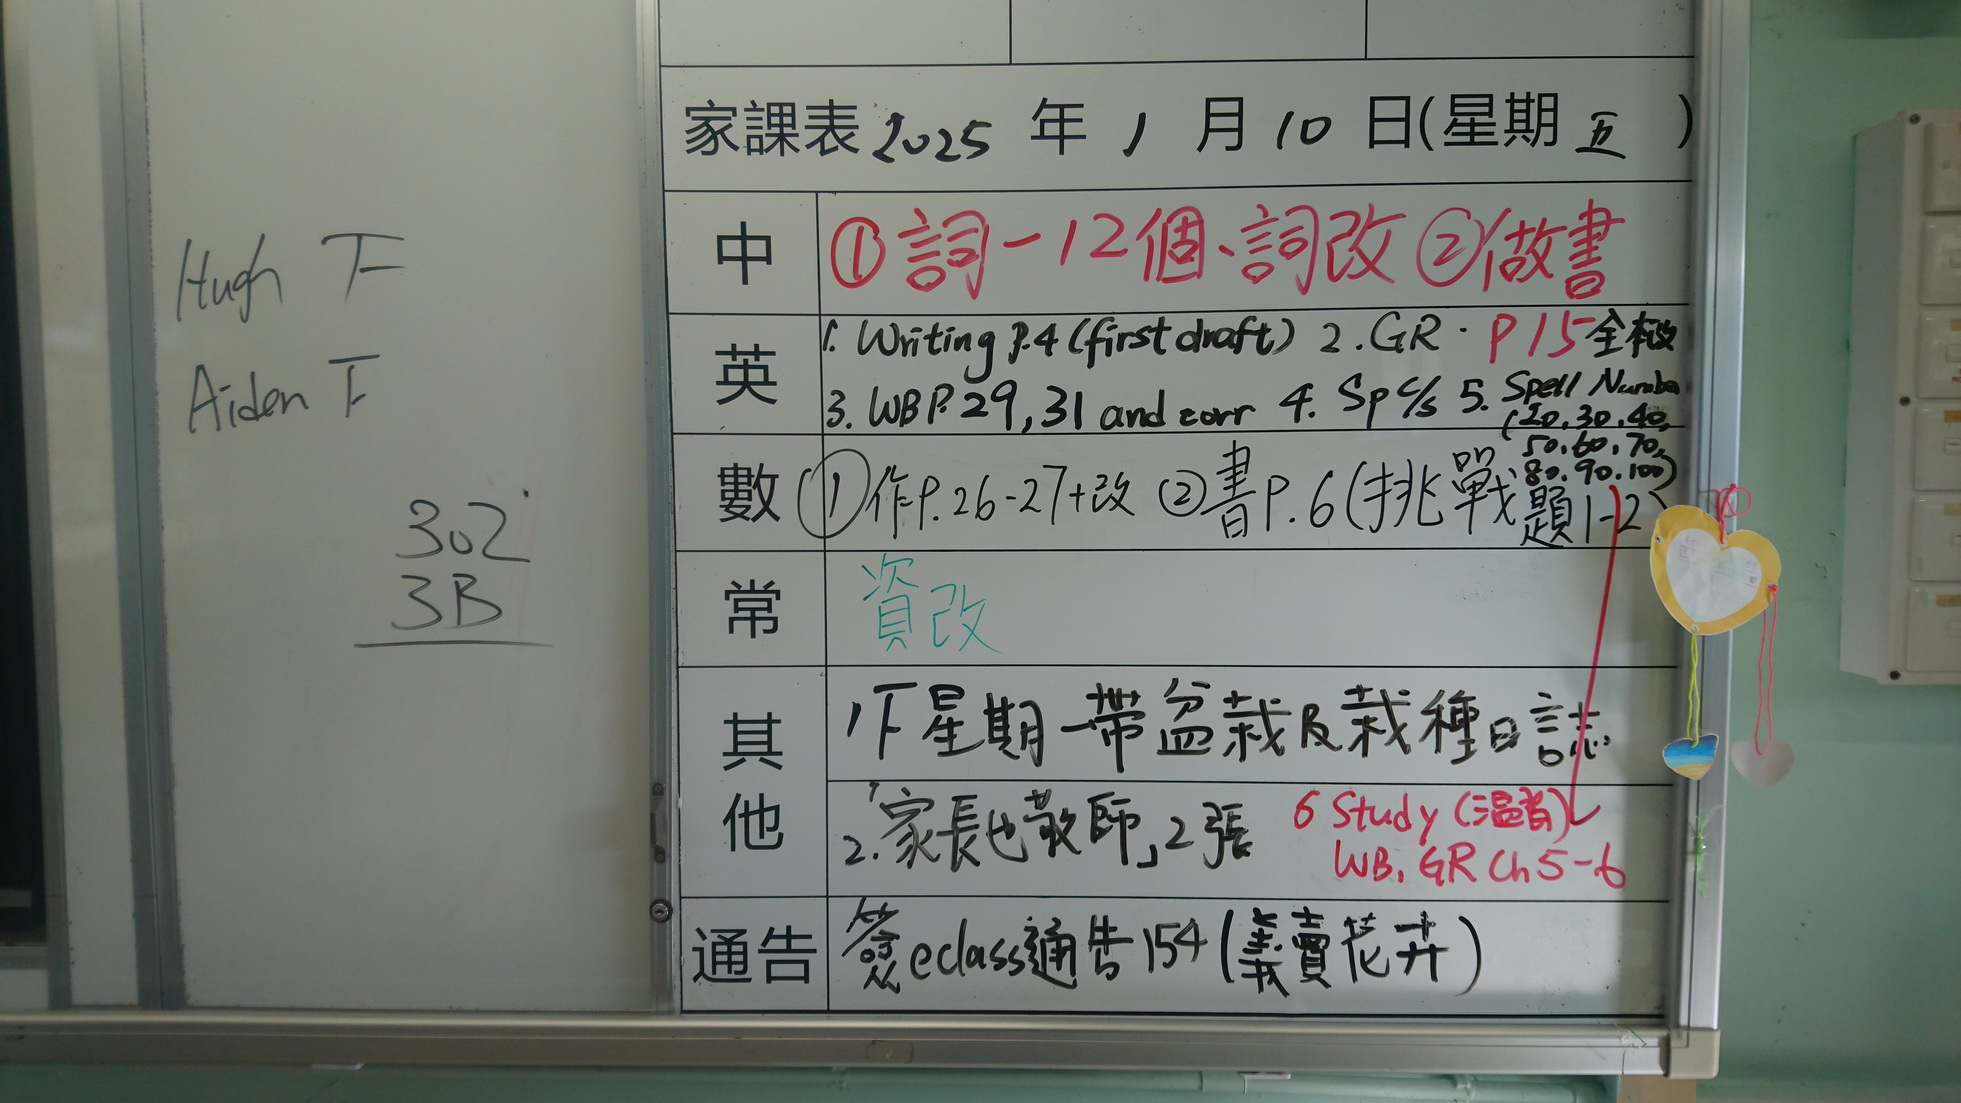 Hugh F
Aiden F
302
3B
家課表 2025 年 1 月 10 日(星期 五 )
中 ①詞-12個、詞改 ②做書
英 1. Writing P.4 (first draft) 2. GR. P15 全本改
3. WB P.29, 31 and corr 4. Sp c/s 5. Spell Number
(20, 30, 40,
50, 60, 70,
80, 90, 100)
數 ①作P.26-27+改 ②書P.6(挑戰題1-2)
常 資改
其他 1 下星期一帶盆栽及栽種日誌
2.「家長也敬師」2張
6 Study (溫習)
WB, GR Ch 5-6
通告 簽eclass通告154(義賣花卉)